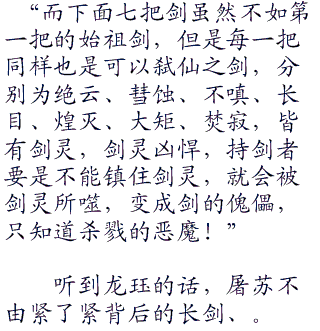 “而下面七把剑虽然不如第
一把的始祖剑，但是每一把
同样也是可以弑仙之剑，分
别为绝云、彗蚀、不嗔、长
目、煌灭、大矩、焚寂，皆
有剑灵，剑灵凶悍，持剑者
要是不能镇住剑灵，就会被
剑灵所噬，变成剑的傀儡，
只知道杀戮的恶魔！”
听到龙珏的话，屠苏不
由紧了紧背后的长剑、。